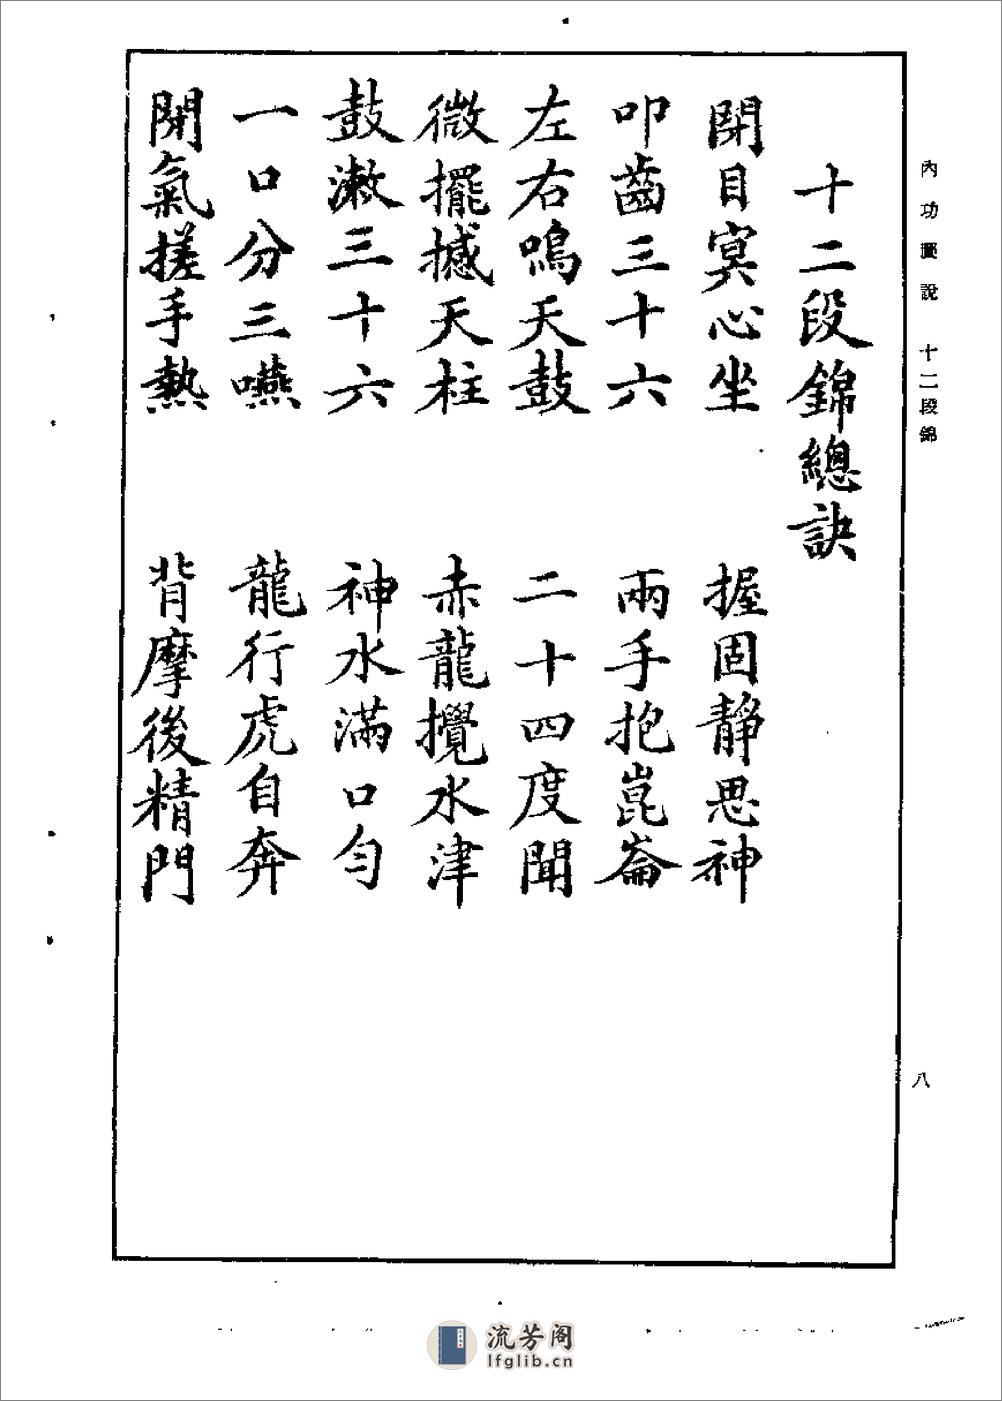 內功圖說 十二段錦
八
十二段錦總訣
閉目冥心坐 握固靜思神
叩齒三十六 兩手抱崑崙
左右鳴天鼓 二十四度聞
微擺撼天柱 赤龍攪水津
鼓漱三十六 神水滿口勻
一口分三嚥 龍行虎自奔
閉氣搓手熱 背摩後精門
流芳阁
lfglib.cn